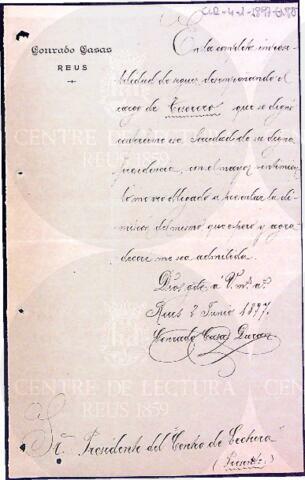 Conrado Casas
REUS
En la completa imposi-
bilidad de seguir desempeñando el
cargo de Tesorero que se dignó
conferirme esa Sociedad de su digna
presidencia, con el mayor sentimiento
me veo obligado á presentar la di-
misión del mismo que espero y agra-
deceré me sea admitida.
Dios gde á V. ms as
Reus 2 Junio 1897.
Conrado Casas Duran
Sr. Presidente del "Centro de Lectura"
(Presente)
CENTRE DE LECTURA
REUS 1859
CENTRE DE LECTURA
REUS 1859